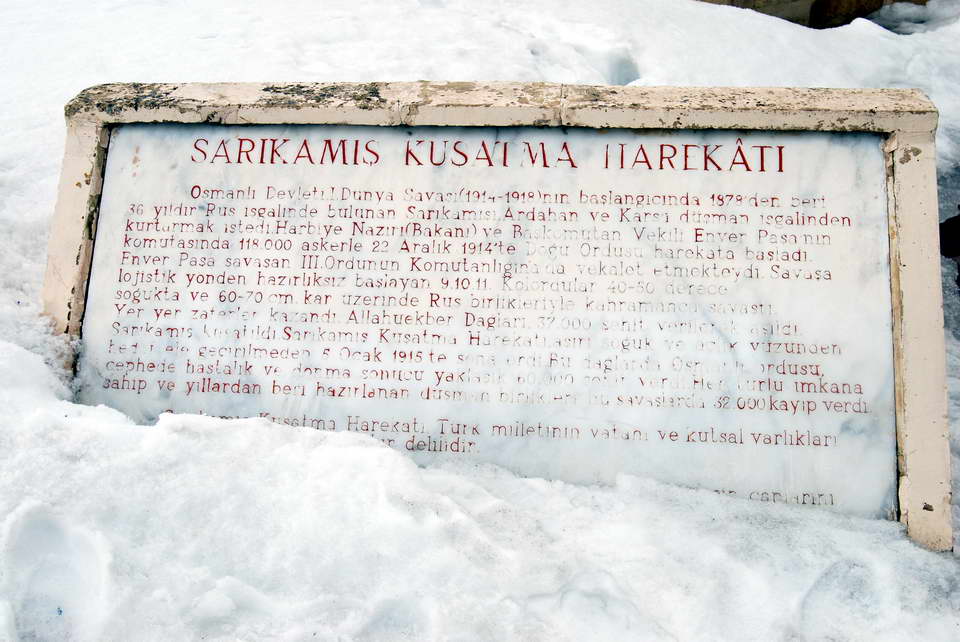 SARIKAMIŞ KUŞATMA HAREKÂTI
Osmanlı Devleti.I.Dünya Savaşı(1914-1918)'nın başlangıcında 1878'den beri
36 yıldır Rus işgalinde bulunan Sarıkamış.Ardahan ve Kars'ı düşman işgalinden
kurtarmak istedi.Harbiye Nazırı(Bakanı) ve Başkomutan Vekili Enver Paşa'nın
komutasında 118.000 askerle 22 Aralık 1914'te Doğu Ordusu harekata başladı.
Enver Paşa savaşan III.Ordunun Komutanlığına'da vekalet etmekteydi. Savaşa
lojistik yönden hazırlıksız başlayan 9.10.11. Kolordular 40-50 derece
soğukta ve 60-70 cm. kar üzerinde Rus birlikleriyle kahramanca savaştı.
Yer yer zaferler kazandı. Allahuekber Dağları 37.000 şehit verilerek aşıldı.
Sarıkamış kuşatıldı.Sarıkamış Kuşatma Harekatı.aşırı soğuk ve açlık yüzünden
geçirilmeden 5 Ocak 1915'te sona erdi.Bu dağlarda Osmanlı ordusu,
cephede hastalık ve donma sonucu yaklaşık 60.000 şehit verdi.Her türlü imkana
sahip ve yıllardan beri hazırlanan düşman birlikleri bu savaşlarda 32.000 kayıp verdi.
Kuşatma Harekatı. Türk milletinin vatanı ve kutsal varlıkları
delilidir.
canların